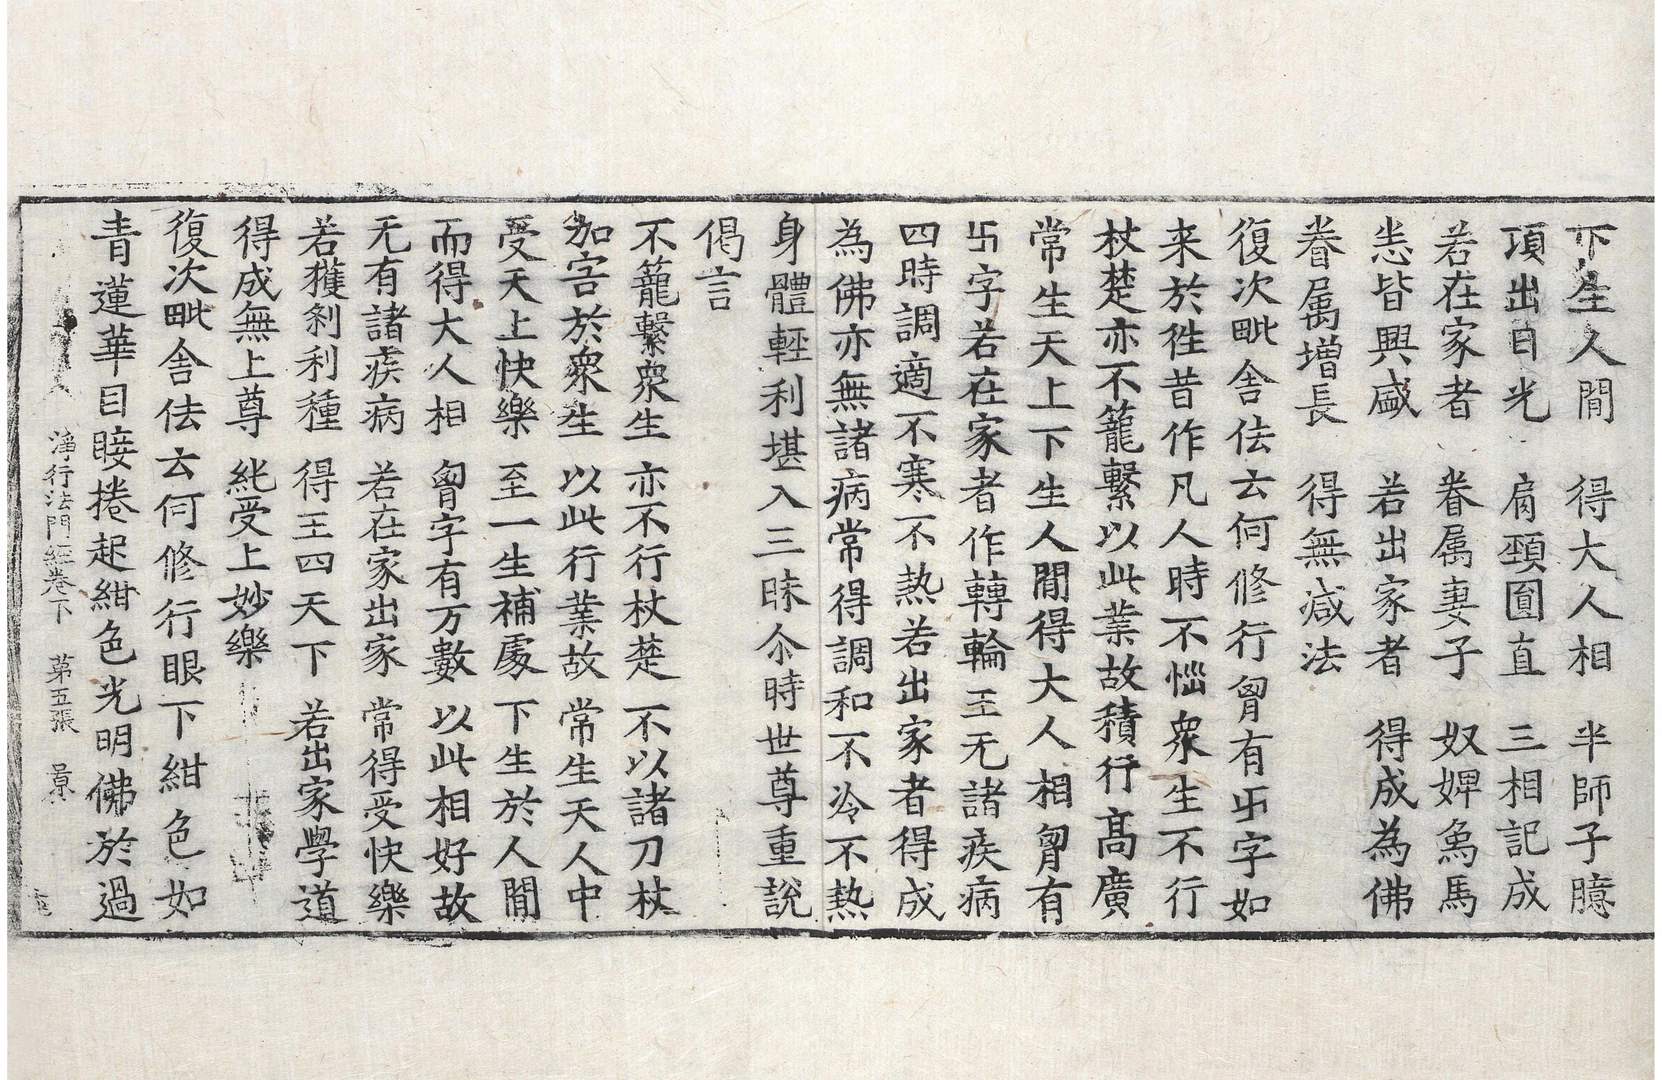 下生人間　得大人相　半師子臆
頂出日光　肩頸圎直　三相記成
若在家者　眷属妻子　奴婢象馬
恙皆興盛　若出家者　得成為佛
眷属増長　得無減法
復次毗舍佉云何修行胷有卐字如
来於徃昔作凡人時不惱衆生不行
杖楚亦不籠繫以此業故積行髙廣
常生天上下生人間得大人相胷有
卐字若在家者作轉輪王无諸疾病
四時調適不寒不熱若出家者得成
為佛亦無諸病常得調和不冷不熱
身體輕利堪入三昧尒時世尊重說
偈言
不籠繫衆生　亦不行杖楚　不以諸刀杖
加害於衆生　以此行業故　常生天人中
受天上快樂　至一生補處　下生於人間
而得大人相　胷字有万數　以此相好故
无有諸疾病　若在家出家　常得受快樂
若獲刹利種　得王四天下　若出家學道
得成無上尊　純受上妙樂
復次毗舍佉云何修行眼下紺色如
青蓮華目睫捲起紺色光明佛於過
淨行法門經卷下　第五張　景